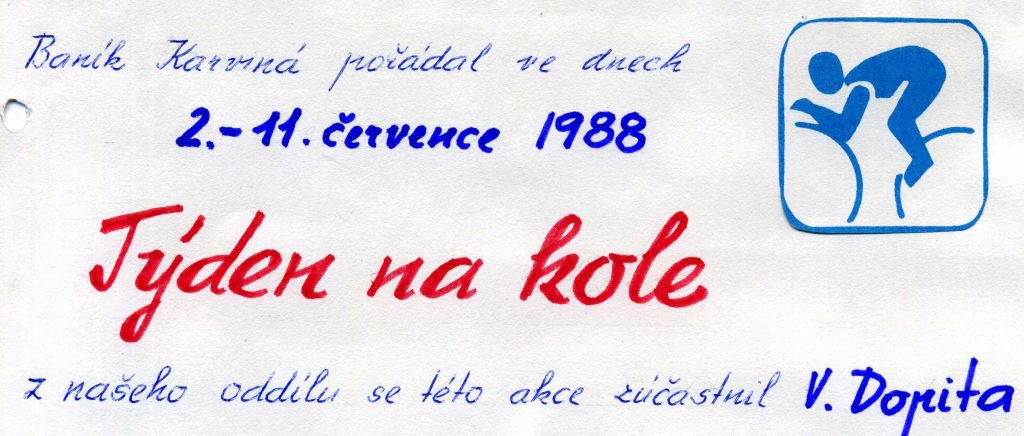 Baník Karviná pořádal ve dnech
2.-11. července 1988
Týden na kole
z našeho oddílu se této akce zúčastnil V. Dopita